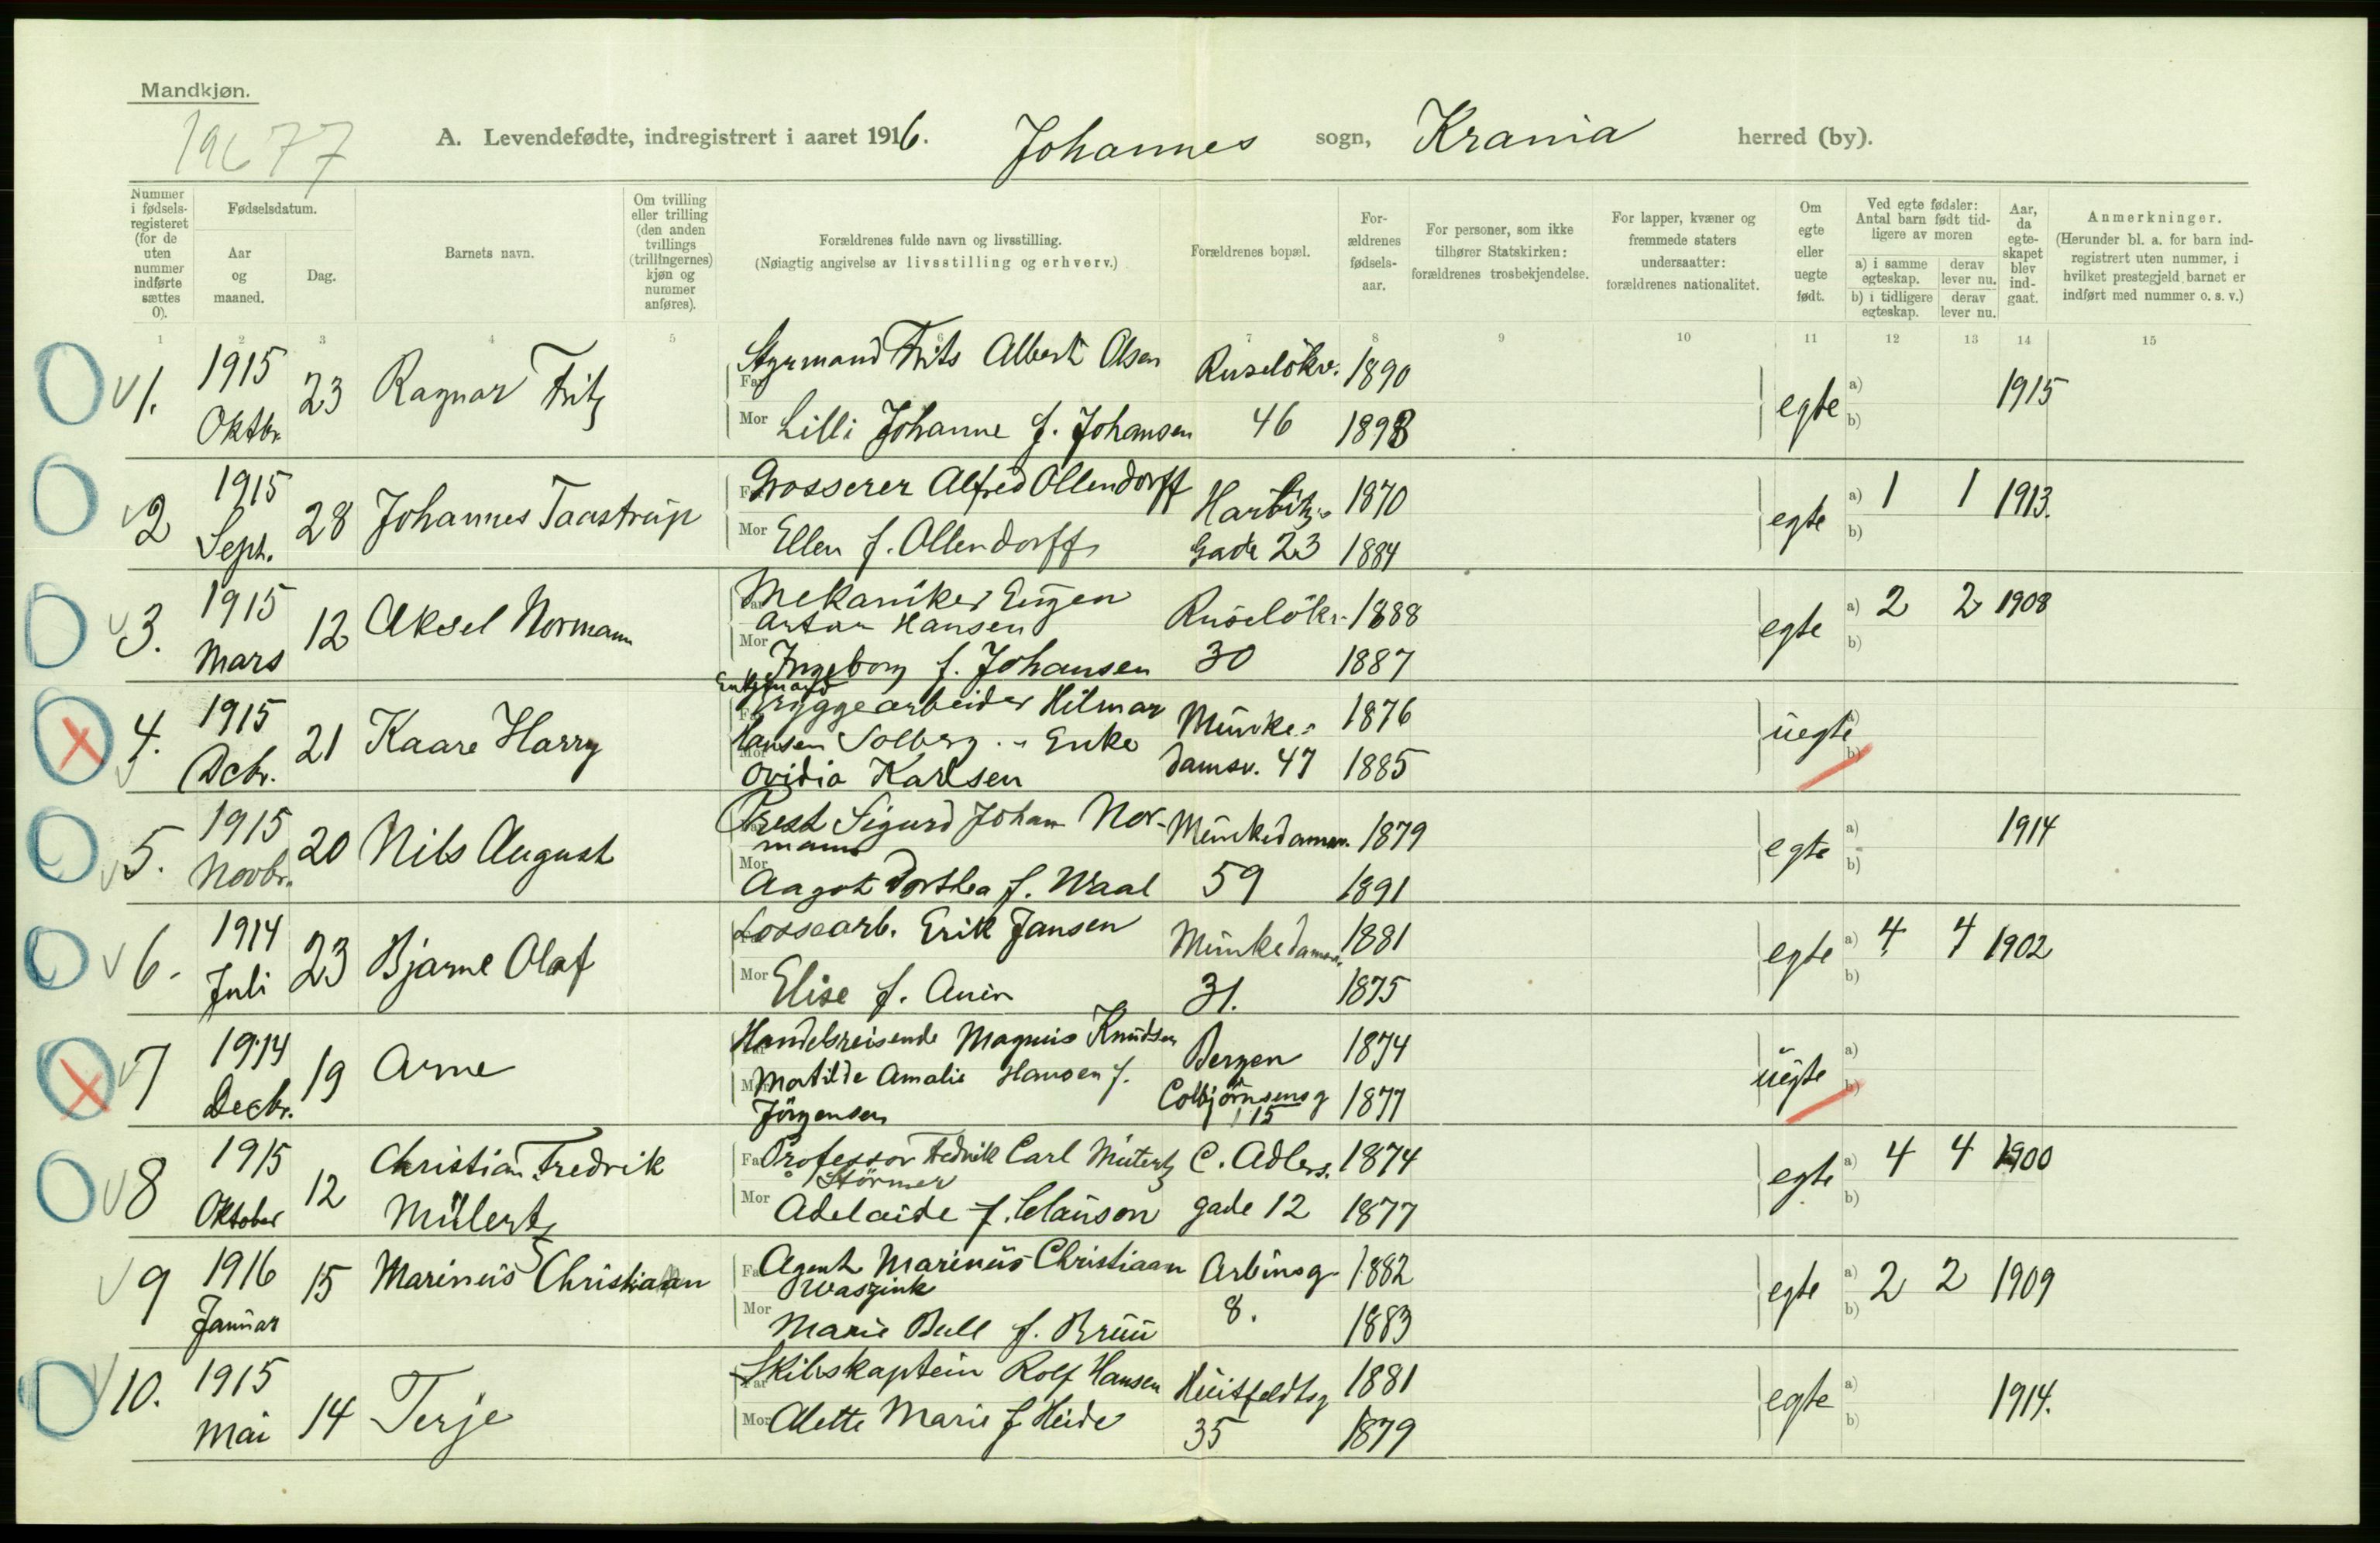 Mandkjøn.
19677
A. Levendefødte, indregistrert i aaret 1916. Johannes sogn, Krania herred (by).
Nummer i fødsels-registeret (for de uten nummer indførte sættes 0).
Fødselsdatum.
Aar og maaned.
Dag.
Barnets navn.
Om tvilling eller trilling (den anden tvillings (trillingernes) kjøn og nummer anføres).
Forældrenes fulde navn og livsstilling.
(Nøiagtig angivelse av livsstilling og erhverv.)
Forældrenes bopæl.
For-ældrenes fødsels-aar.
For personer, som ikke tilhører Statskirken: forældrenes trosbekjendelse.
For lapper, kvæner og fremmede staters undersaatter: forældrenes nationalitet.
Om egte eller uegte født.
Ved egte fødsler: Antal barn født tid-ligere av moren
a) i samme egteskap.
derav lever nu.
b) i tidligere egteskap.
derav lever nu.
Aar, da egte-skapet blev ind-gaat.
Anmerkninger.
(Herunder bl. a. for barn ind-registrert uten nummer, i hvilket prestegjeld barnet er indført med nummer o. s. v.)
1 2 3 4 5 6 7 8 9 10 11 12 13 14 15
1. 1915 Oktbr. 23 Ragnar Fritz
Far Styrmand Frits Albert Olsen Ruseløkv. 1890
Mor Lilli Johanne f. Johansen 46 1898
egte a) b) 1915
2 1915 Sept. 28 Johannes Taastrup
Far Grosserer Alfred Ollendorff Harbitz- 1870
Mor Ellen f. Ollendorff Gade 23 1884
egte a) 1 1 b) 1913.
3. 1915 Mars 12 Aksel Normann
Far Mekaniker Eugen
Anton Hansen Ruseløkv. 1888
Mor Ingeborg f. Johansen 30 1887
egte a) 2 2 b) 1908
4. 1915 Dcbr. 21 Kaare Harry
Enkemand
Far Bryggearbeider Hilmar Munke- 1876
Hansen Solberg - Enke
Mor Ovidia Karlsen damsv. 47 1885
uegte a) b)
5. 1915 Novbr. 20 Nils August
Far Prest Sigurd Johan Nor-
mann Munkedamsv. 1879
Mor Aagot Dorthea f. Waal 59 1891
egte a) b) 1914
6. 1914 Juli 23 Bjarne Olaf
Far Lossearb. Erik Jansen Munkedamsv. 1881
Mor Elise f. 31. 1875
egte a) 4 4 b) 1902
7 1914 Decbr. 19 Arne
Far Handelsreisende Magnus Knudsen Bergen 1874
Mor Matilde Amalie Hansen f.
Jörgensen Colbjörnsensg 15 1877
uegte a) b)
8 1915 Oktober 12 Christian Fredrik
Mülertz
Far Professor Fredrik Carl Mülertz
Störmer C. Adlers. 1874
Mor Adelaide f. Clauson gade 12 1877
egte a) 4 4 b) 1900
9 1916 Januar 15 Marinus Christiaan
Far Agent Marinus Christiaan
Waszink Arbinsg 1882
Mor Marie Bull f. Bruu 8. 1883
egte a) 2 2 b) 1909
10. 1915 Mai 14 Terje
Far Skibskaptein Rolf Hansen Huitfeldtsg 1881
Mor Alette Marie f Heide 35 1879
egte a) b) 1914.